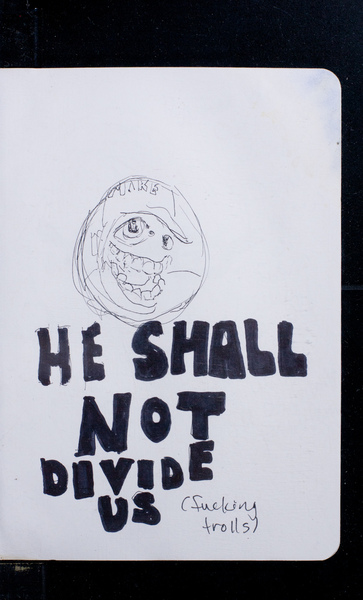 MAKE
HE SHALL
NOT
DIVIDE
US
(fucking
trolls)